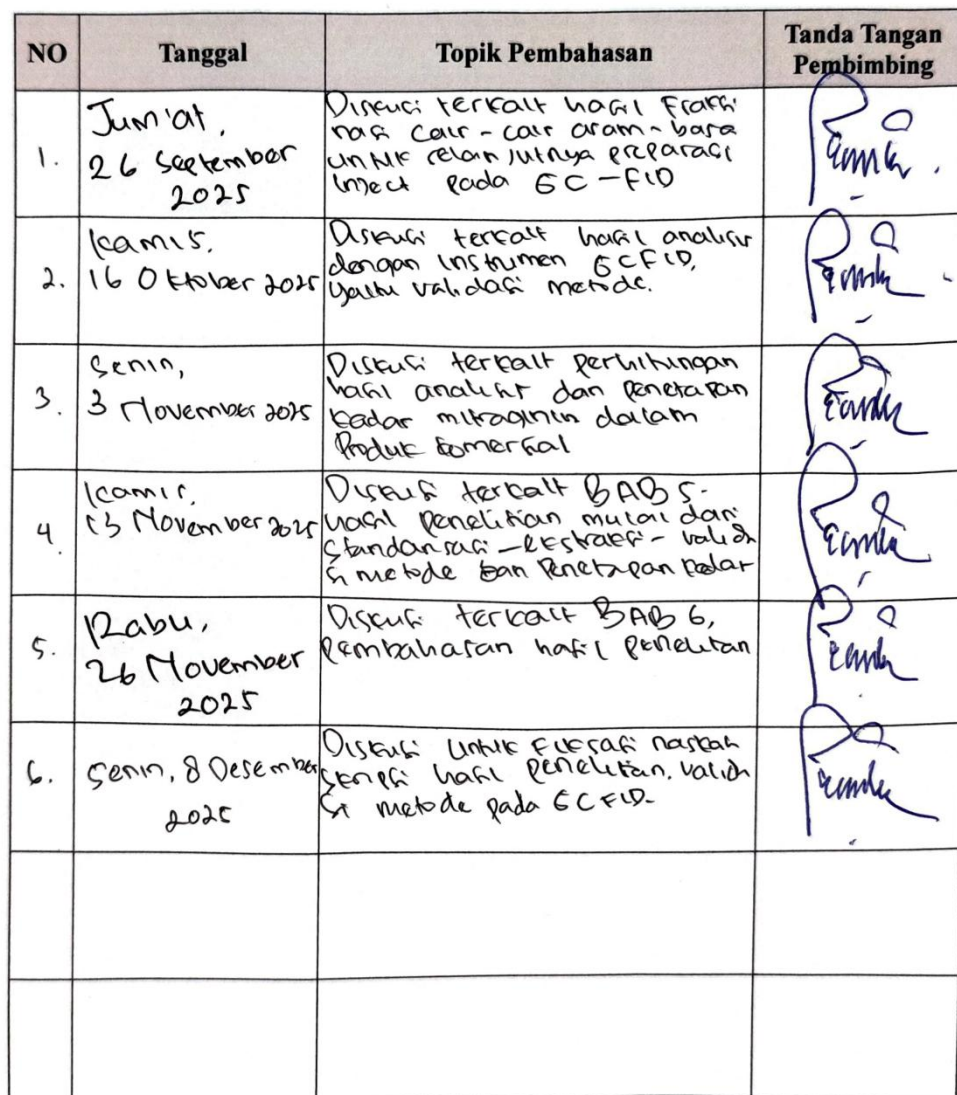 NO Tanggal Topik Pembahasan Tanda Tangan Pembimbing
1.
Jum'at,
26 September
2025
Diskusi terkait hasil Fraksi
nasi cair - cair asam - basa
untuk selanjutnya preparasi
inject pada GC-FID
2.
Kamis,
16 Oktober 2025
Diskusi terkait hasil analisis
dengan instrumen GCFID,
yaitu validasi metode.
3.
Senin,
3 November 2025
Diskusi terkait perhitungan
hasil analisis dan penetapan
kadar mitraginin dalam
Produk komersal
4.
Kamis,
13 November 2025
Diskusi terkait BAB 5-
hasil penelitian mulai dari
standarisasi - ekstraksi - valida
si metode dan penetapan kadar
5.
Rabu,
26 November
2025
Diskusi terkait BAB 6,
pembahasan hasil penelitan
6.
Senin, 8 Desember
2025
Diskusi untuk fiksasi naskah
skripsi hasil penelitan, valida
si metode pada GCFID.